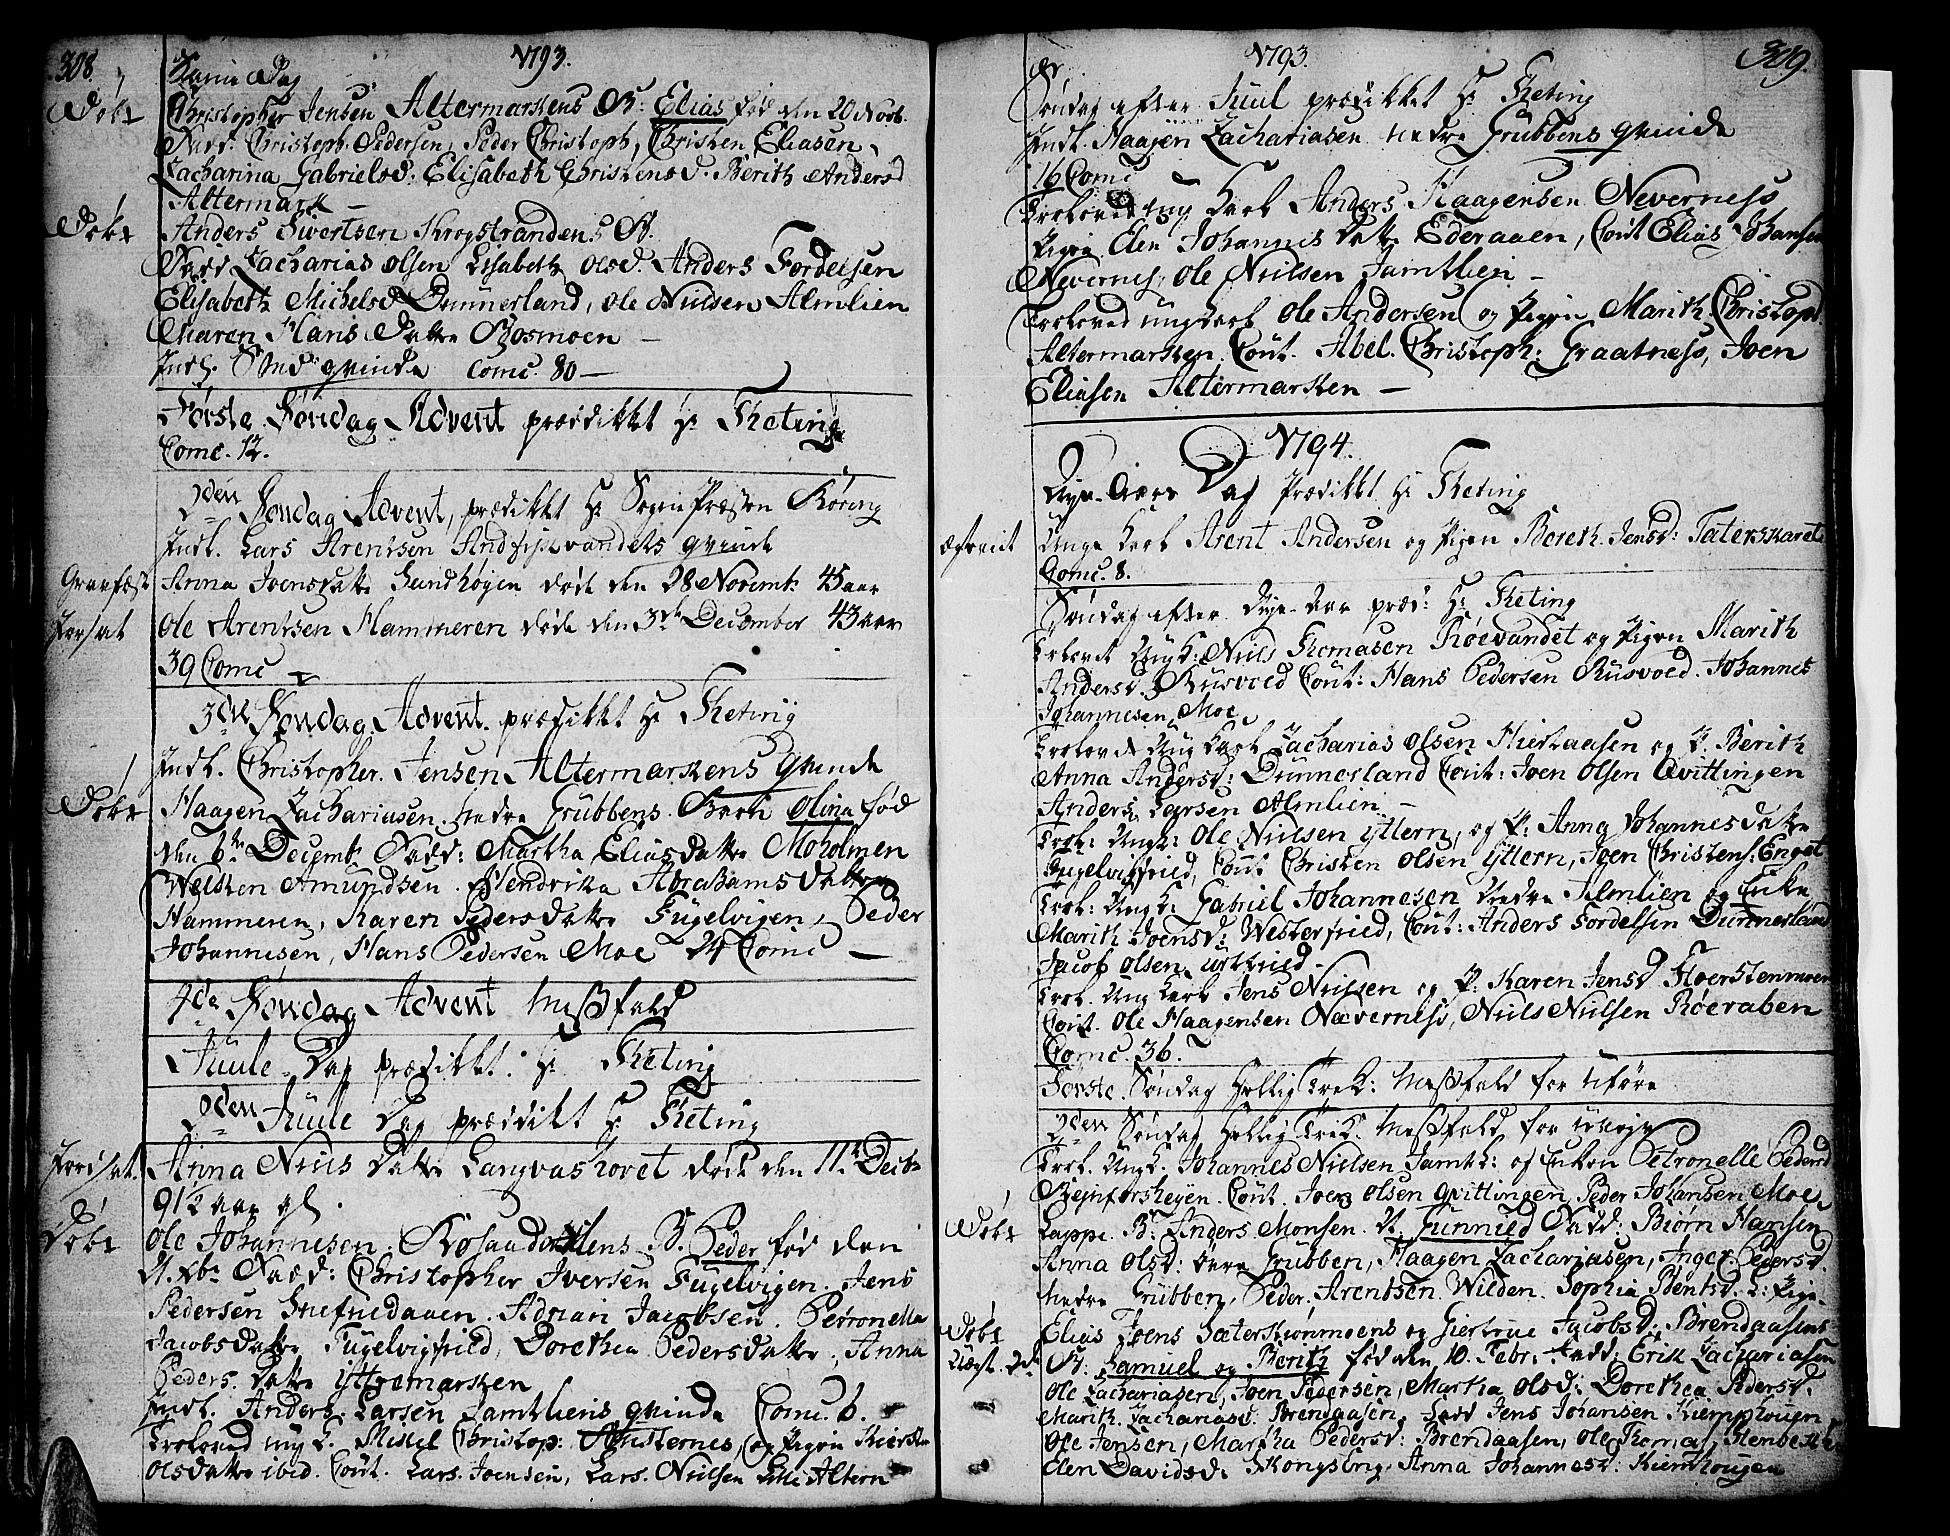 308
1793.
Samme Dag
Døbt
Christopher Jensen Altermarkens B: Elias fød den 20 Novb.
Fadd: Christoph. Pedersen, Peder Christoph, Christen Eliasen,
Zacharina Gabrielsd: Elisabeth Christensd. Berith Andersd
Altermark —
Døbt
Anders Sivertsen Krogstrandens B.
Fadd Zacharias Olsen Lisabeth Olsd. Anders Fordelsen
Elisabeth Michelsd Dunnerland, Ole Nielsen Almlien
Maren Hans Datter Bosmoen —
Indl. qvinde Comc. 80 —
Første Søndag Advent prædikket Hr Theting
Comc. 12.
2den Søndag Advent, prædikket Hr Sogne Præsten Røring
Indl. Lars Arentsen qvinde
Gravfæst
Anna Joensdatter Sandhøgen døde den 28 Novemb. 45 aar
Jordsat
Ole Arentsen Hammeren døde den 3de December 43 aar
39 Comc —
3de Søndag Advent. prædikket Hr Theting
Indl. Christopher Jensen Altermarkens qvinde
Døbt
Haagen Zachariasen nedre Grubbens Barn Olina fød
den 6te Decemb. Fadd: Martha Eliasdatter Moholmen
Welken Amundsen. Hendrika Abrahamsdatter
Hammeren, Karen Pedersdatter Fugelvigen, Peder
Johannesen, Hans Pedersen Moe 24 Comc —
4de Søndag Advent Messefald
Juule-Dag prædikket Hr Theting
2den Juule Dag prædikket Hr Theting
Jordsat.
Anna Niels Datter Langvashovet døde den 11te Decbr
91½ aar gl.
Døbt
Ole Johannesen B. Peder fød den
Xbr Fadd: Christopher Iversen Fugelvigen. Jens
Pedersen Adrian Jacobsen. Petronella
Jacobsdatter Fugelvigfield, Dorethea Pedersdatter, Anna
Peders Datter Yttremarken
Indl. Anders Larsen Jamtliens qvinde Comc. 6.
Troloved ung K. Mikkel Christop: og Pigen
Olsdatter ibid. Cout. Lars Joensen, Lars Nielsen Lille Altern
1793.
309.
Søndag efter Juul prædikket Hr Theting
Indl. Haagen Zachariasen nedre Grubbens qvinde
16 Comc
Trolovet ung Karl Anders Haagensen Neverness
Pigen Elen Johannis Datter Ederaaen, Cout Elias Johansen
Neverness, Ole Nielsen Jamtlien —
Troloved ung Karl Ole Andersen og Pigen Marith Christopd.
Altermarken. Cout. Abel Christoph: Graatness, Joen
Eliasen Altermarken —
1794.
Nye-Aars Dag Prædikket Hr Theting
Unge Karl Arent Andersen og Pigen Bereth Jensd:
Comc. 8.
Søndag efter Nye-Aar præd: Hr Theting
Trolovet Ung K: Niels Thomasen Røevandet og Pigen Marith
Andersd: Rusvold Cout: Hans Pedersen Rusvold. Johannes
Johannesen Moe
Trolovet Ung Karl Zacharias Olsen Hiertaasen og P. Berith
Anna Andersd: Dunnerland Cout: Joen Olsen Qvittingen
Anders Larsen Almlien —
Trol: Ungk: Ole Nielsen Yttern, og P: Anna Johannesdatter
Fugelvigfield, Cout Christen Olsen Yttern, Joen Christens: Enget
Trol: Ung K: Gabriel Johannesen Nedre Almlien og Enke
Marith Joensd: Westerfield, Cout: Anders Fordelsen Dunnerland
Jacob Olsen
Trol. Ung Karl Jens Nielsen og P: Karen Jensd
Cout. Ole Haagensen Næverness, Niels Nielsen Røeraben
Comc. 36.
Første Søndag Hellig Trek: Messefald for Uføre
2den Søndag Hellig Trek: Messefald for
Trol. Ung K. Johannes Nielsen Jamtl: og Enken Petronelle Pedersd
Cout. Joen Olsen Qvittingen Peder Johansen Moe
Døbt
Lappe B: Anders Monsen Gunnied Fadd: Biørn Hansen
Anna Olsd: øvre Grubben, Haagen Zachariasen, Inger Pedersd.
nedre Grubben, Peder Arentsen Wilden. Sophia Bentsd.
Døbt
Elias Joens Sæterstrommoens og Giertrue Jacobsd: Brendaasens
B: Samuel og Berith fød den 10 Febr. Fadd: Erik Zachariasen
Ole Zachariasen, Joen Pedersen, Martha Olsd: Dorethea Pedersd.
Marith Zachariasd: Brendaasen, Fadd Jens Johansen Kiempehougen
Ole Jensen, Martha Pedersd: Brendaasen, Ole Thomas:
Elen Davidsd. Skongseng, Anna Johannesd: